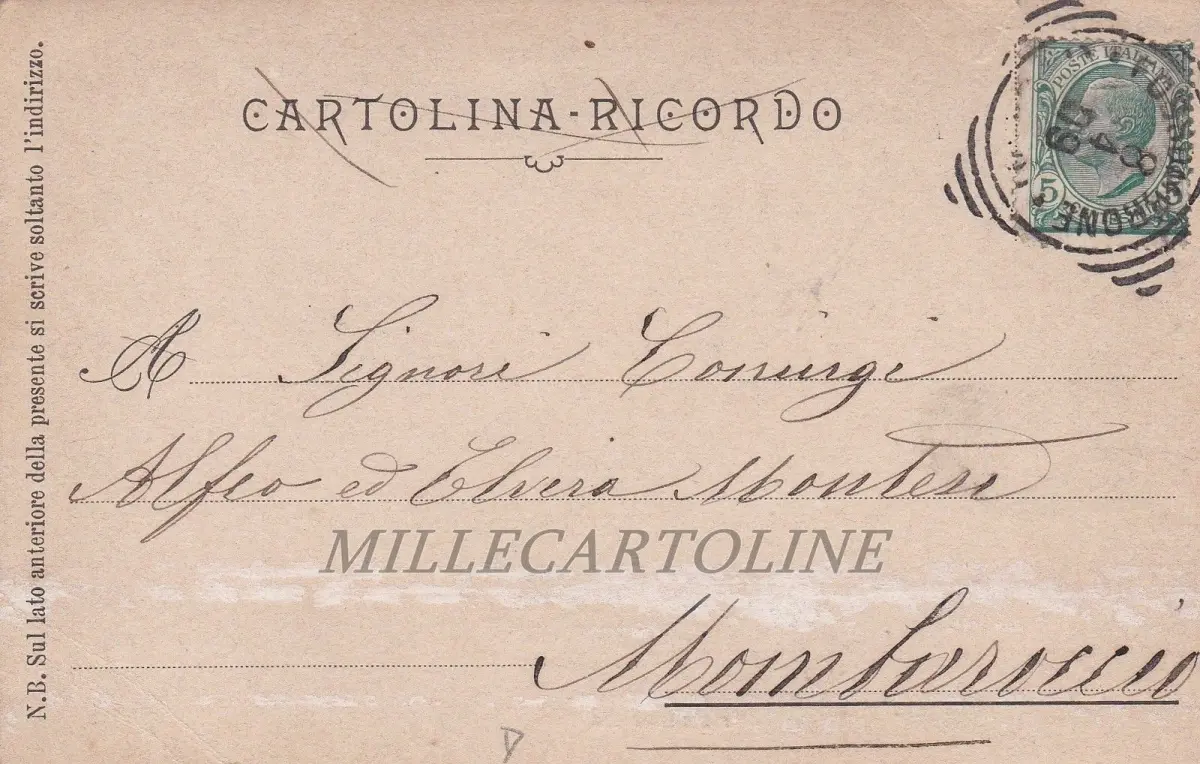 CARTOLINA-RICORDO
POSTE ITALIANE
5
8 4 09
A Signori Coniugi
Alfeo ed Elvira Montesi
MILLECARTOLINE
Mombaroccio
N.B. Sul lato anteriore della presente si scrive soltanto l'indirizzo.